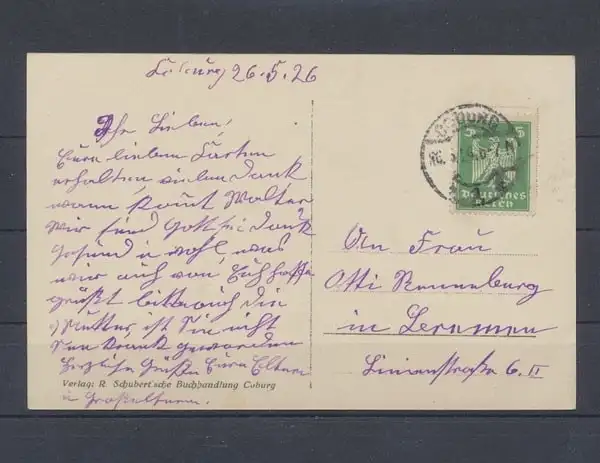 Coburg 26.5.26
Ihr Lieben!
Eure lieben Karten
erhalten, vielen Dank
wann kommt Walter
wir sind Gott sei dank
gesund u wohl, was
wir auch von Euch hoffen
grüßt bitte auch die
Mutter, ist Sie nicht
krank geworden
Herzliche Grüße Eure Eltern
u Großeltern.
Verlag: R. Schubert'sche Buchhandlung Coburg
COBURG
5 5
Deutsches
Reich
An Frau
Otti
in
Linienstraße 6. II